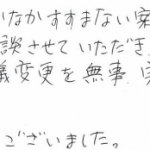 なかなかすすまない案
談させていただき
義変更を無事、完
ございました。